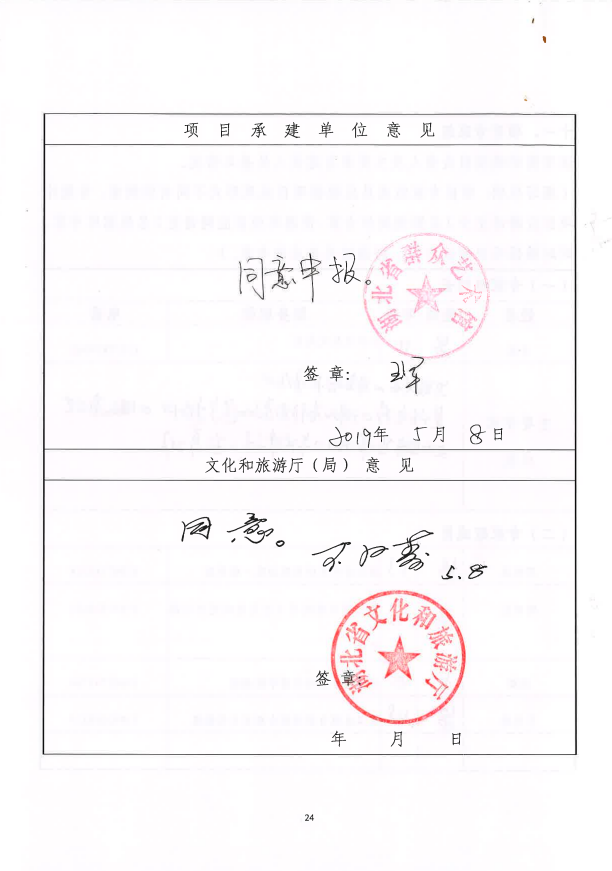 项目承建单位意见
同意申报。
湖北省群众艺术馆
签章:
2019年 5月 8日
文化和旅游厅(局)意见
同意。
5.8
湖北省文化和旅游厅
签章:
年 月 日
24